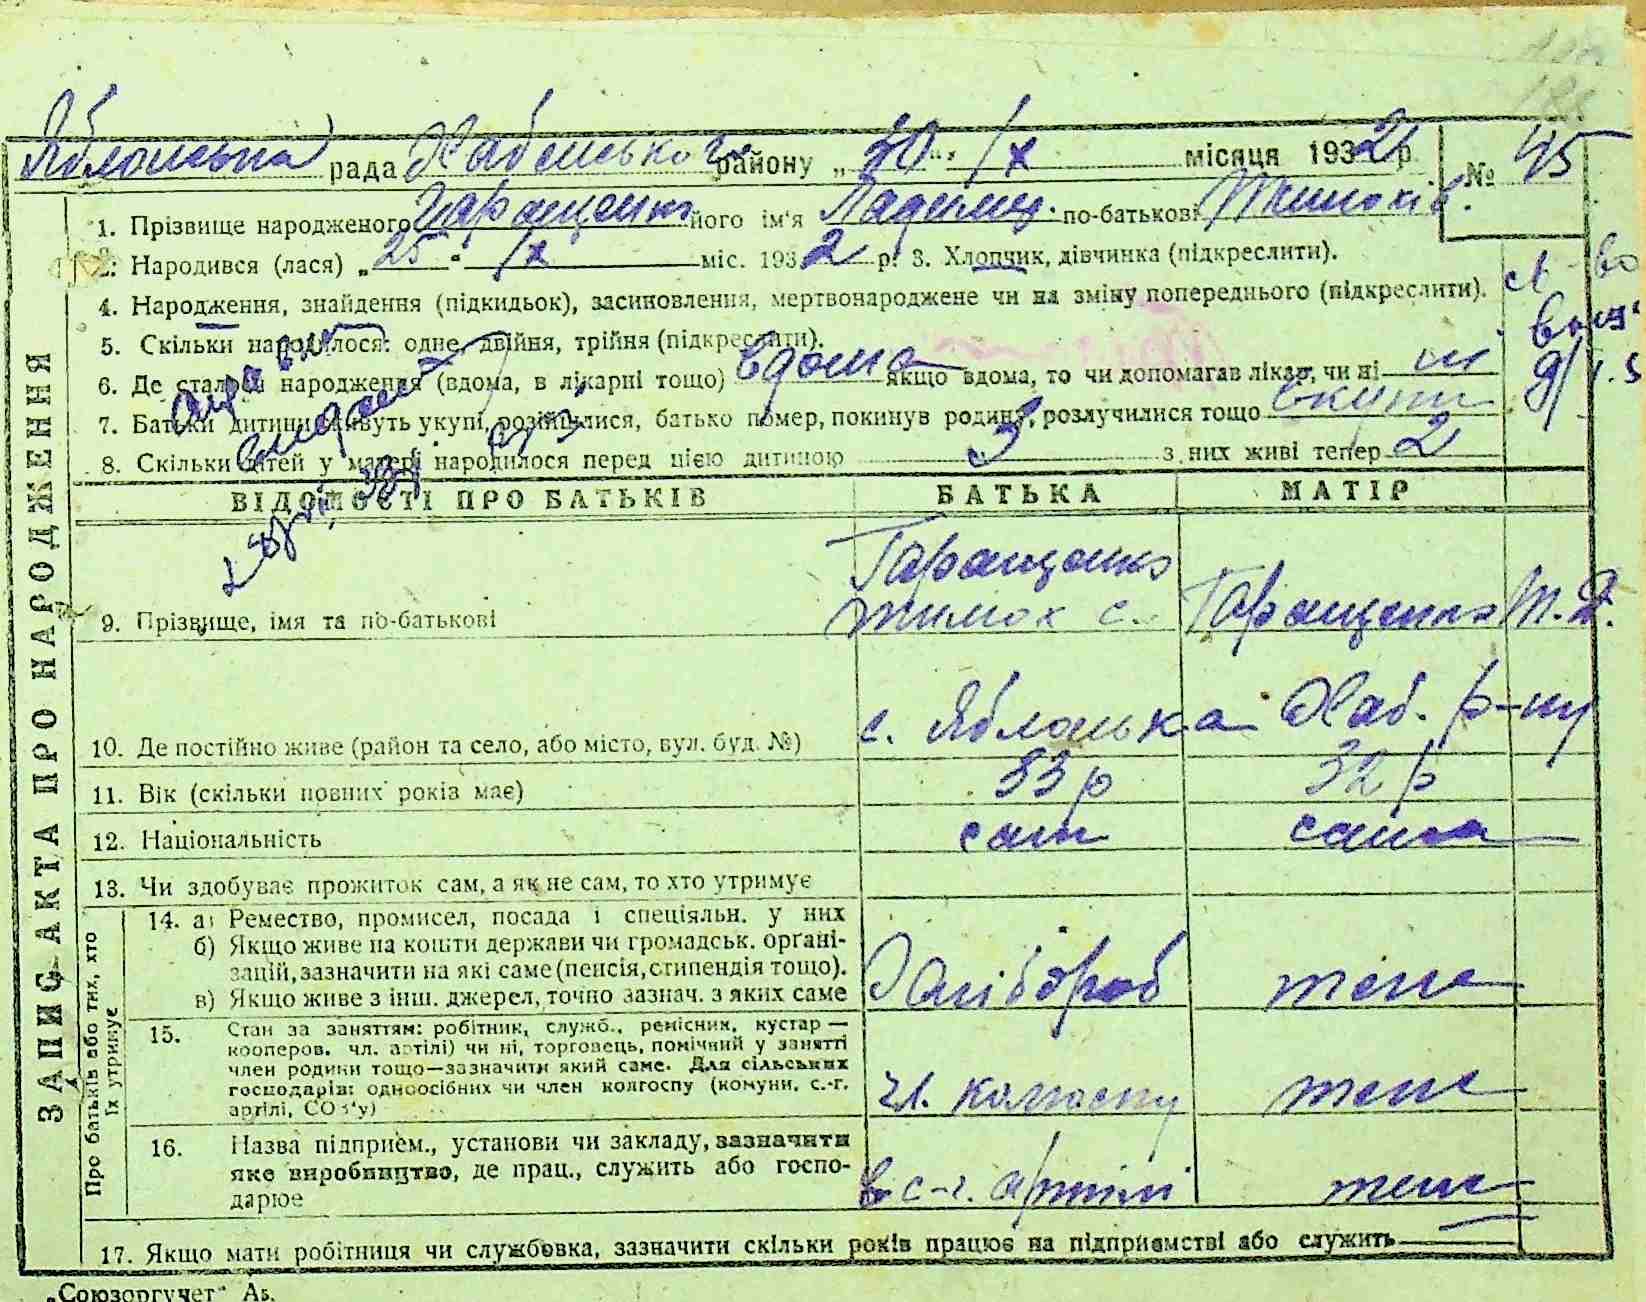 Яблонська рада Хабенського району „30“ IX місяця 1932 р. № 45
1. Прізвище народженого Таращенко його ім'я по-батькові Тимохів.
2. Народився (лася) „25“ IX міс. 1932 р. 3. Хлопчик, дівчинка (підкреслити).
4. Народження, знайдення (підкидьок), засиновлення, мертвонароджене чи на зміну попереднього (підкреслити).
5. Скільки народилося: одне, двійня, трійня (підкреслити).
6. Де сталося народження (вдома, в лікарні тощо) вдома якщо вдома, то чи допомагав лікар, чи ні ні
7. Батьки дитини живуть укупі, розійшлися, батько помер, покинув родину, розлучилися тощо вкупи
8. Скільки дітей у матері народилося перед цією дитиною 3 з них живі тепер 2
ВІДОМОСТІ ПРО БАТЬКІВ БАТЬКА МАТІР
9. Прізвище, імя та по-батькові Таращенко Тимох С. Таращенко Т. Д.
10. Де постійно живе (район та село, або місто, вул. буд. №) с. Яблонька Хаб. р-ну
11. Вік (скільки повних років має) 33 р 32 р
12. Національність
13. Чи здобуває прожиток сам, а як не сам, то хто утримує сам сама
ЗАПИС АКТА ПРО НАРОДЖЕННЯ
Про батьків або тих, хто їх утримує
14. а) Ремество, промисел, посада і спеціяльн. у них
б) Якщо живе на кошти держави чи громадськ. органі-
зацій, зазначити на які саме (пенсія, стипендія тощо).
в) Якщо живе з інш. джерел, точно зазнач. з яких саме
Хлібороб теж
15. Стан за заняттям: робітник, служб., ремісник, кустар —
кооперов. чл. артілі) чи ні, торговець, помічний у занятті
член родини тощо—зазначити який саме. Для сільських
господарів: одноосібних чи член колгоспу (комуни, с.-г.
артілі, СОЗ'у)
чл. колгоспу теж
16. Назва підприєм., установи чи закладу, зазначити
яке виробництво, де прац., служить або госпо-
дарює
в с-г. артілі теж
17. Якщо мати робітниця чи службовка, зазначити скільки років працює на підприємстві або служить
„Союзоргучет“